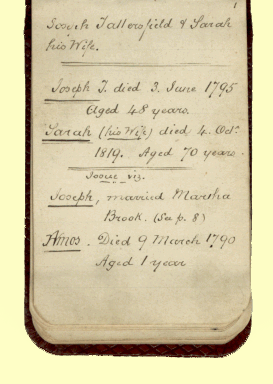 1
Joseph Tattersfield & Sarah
his Wife.
Joseph T. died 3. June 1795
Aged 48 years.
Sarah (his Wife) died 4. Octr.
1819. Aged 70 years.
Issue viz.
Joseph, married Martha
Brook. (See p. 8)
Amos. Died 9 March 1790
Aged 1 year